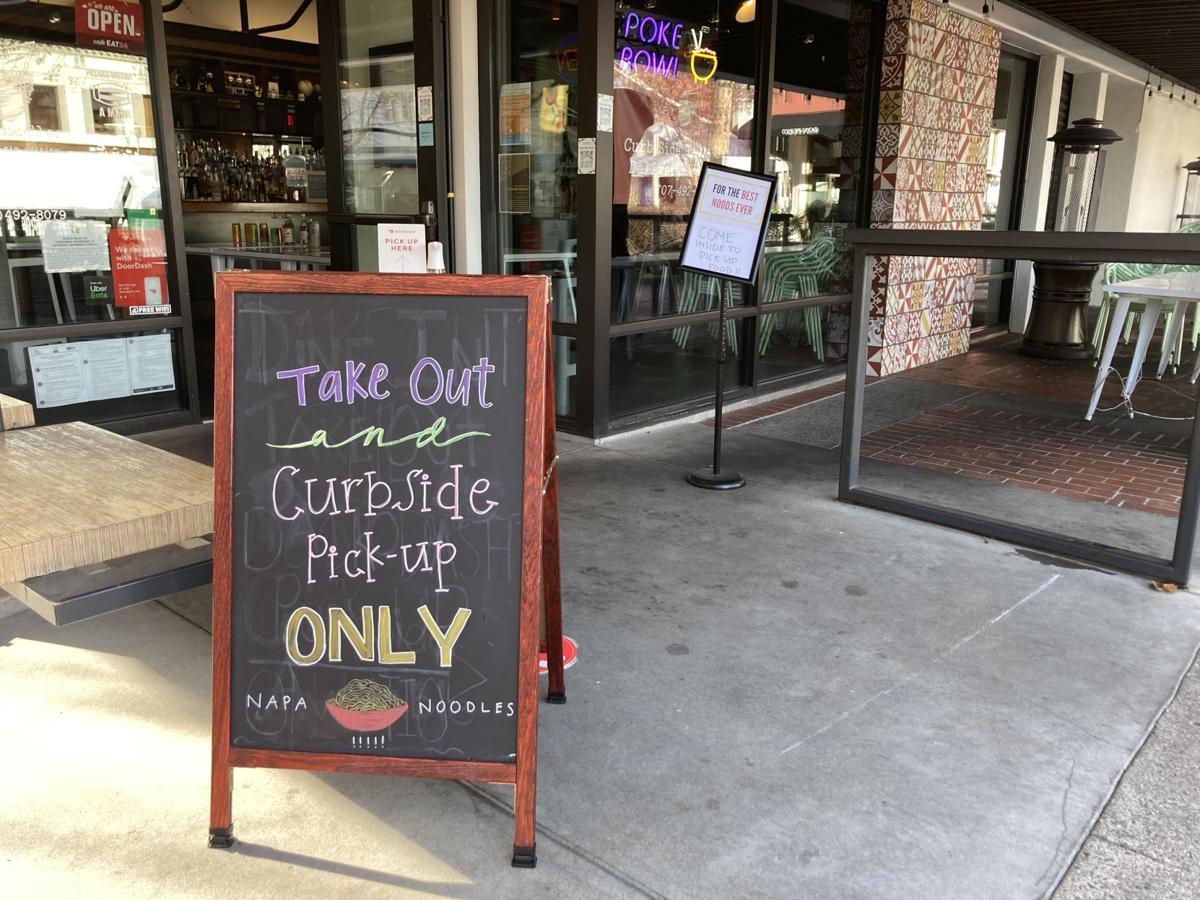 we are
OPEN
EAT
492-8079
We deliver
with
DoorDash
Uber
Eats
FREE WIFI
PICK UP
HERE
POKE
BOWL
Curbside
707-492
FOR THE BEST
NOODS EVER
COME
INSIDE TO
PICK UP
FOOD!!
Take Out
and
Curbside
Pick-up
ONLY
NAPA NOODLES
!!!!!